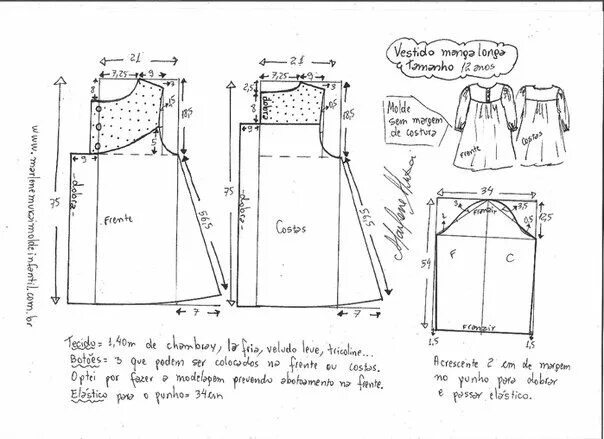 Vestido manga longa
Tamanho 12 anos
Molde
sem margem
de costura
Frente
Costas
www.marlenemukaimoldeinfantil.com.br
21
7,25
9
8
7
1,5
18,5
5
9
dobra
75
Frente
56,5
7
21
7,25
9
2,5
8
dobra
18,5
9
dobra
75
Costas
56,5
7
Marlene Mukai
34
9
3,5
Franzir
12,5
2
0,5
54
F
C
Franzir
1,5
1,5
Tecido = 1,40m de chambray, lã fria, veludo leve, tricoline...
Botões = 3 que podem ser colocados na frente ou costas.
Optei por fazer a modelagem prevendo abotoamento na frente.
Elástico para o punho = 34cm
Acrescente 2 cm de margem
no punho para dobrar
e passar elástico.